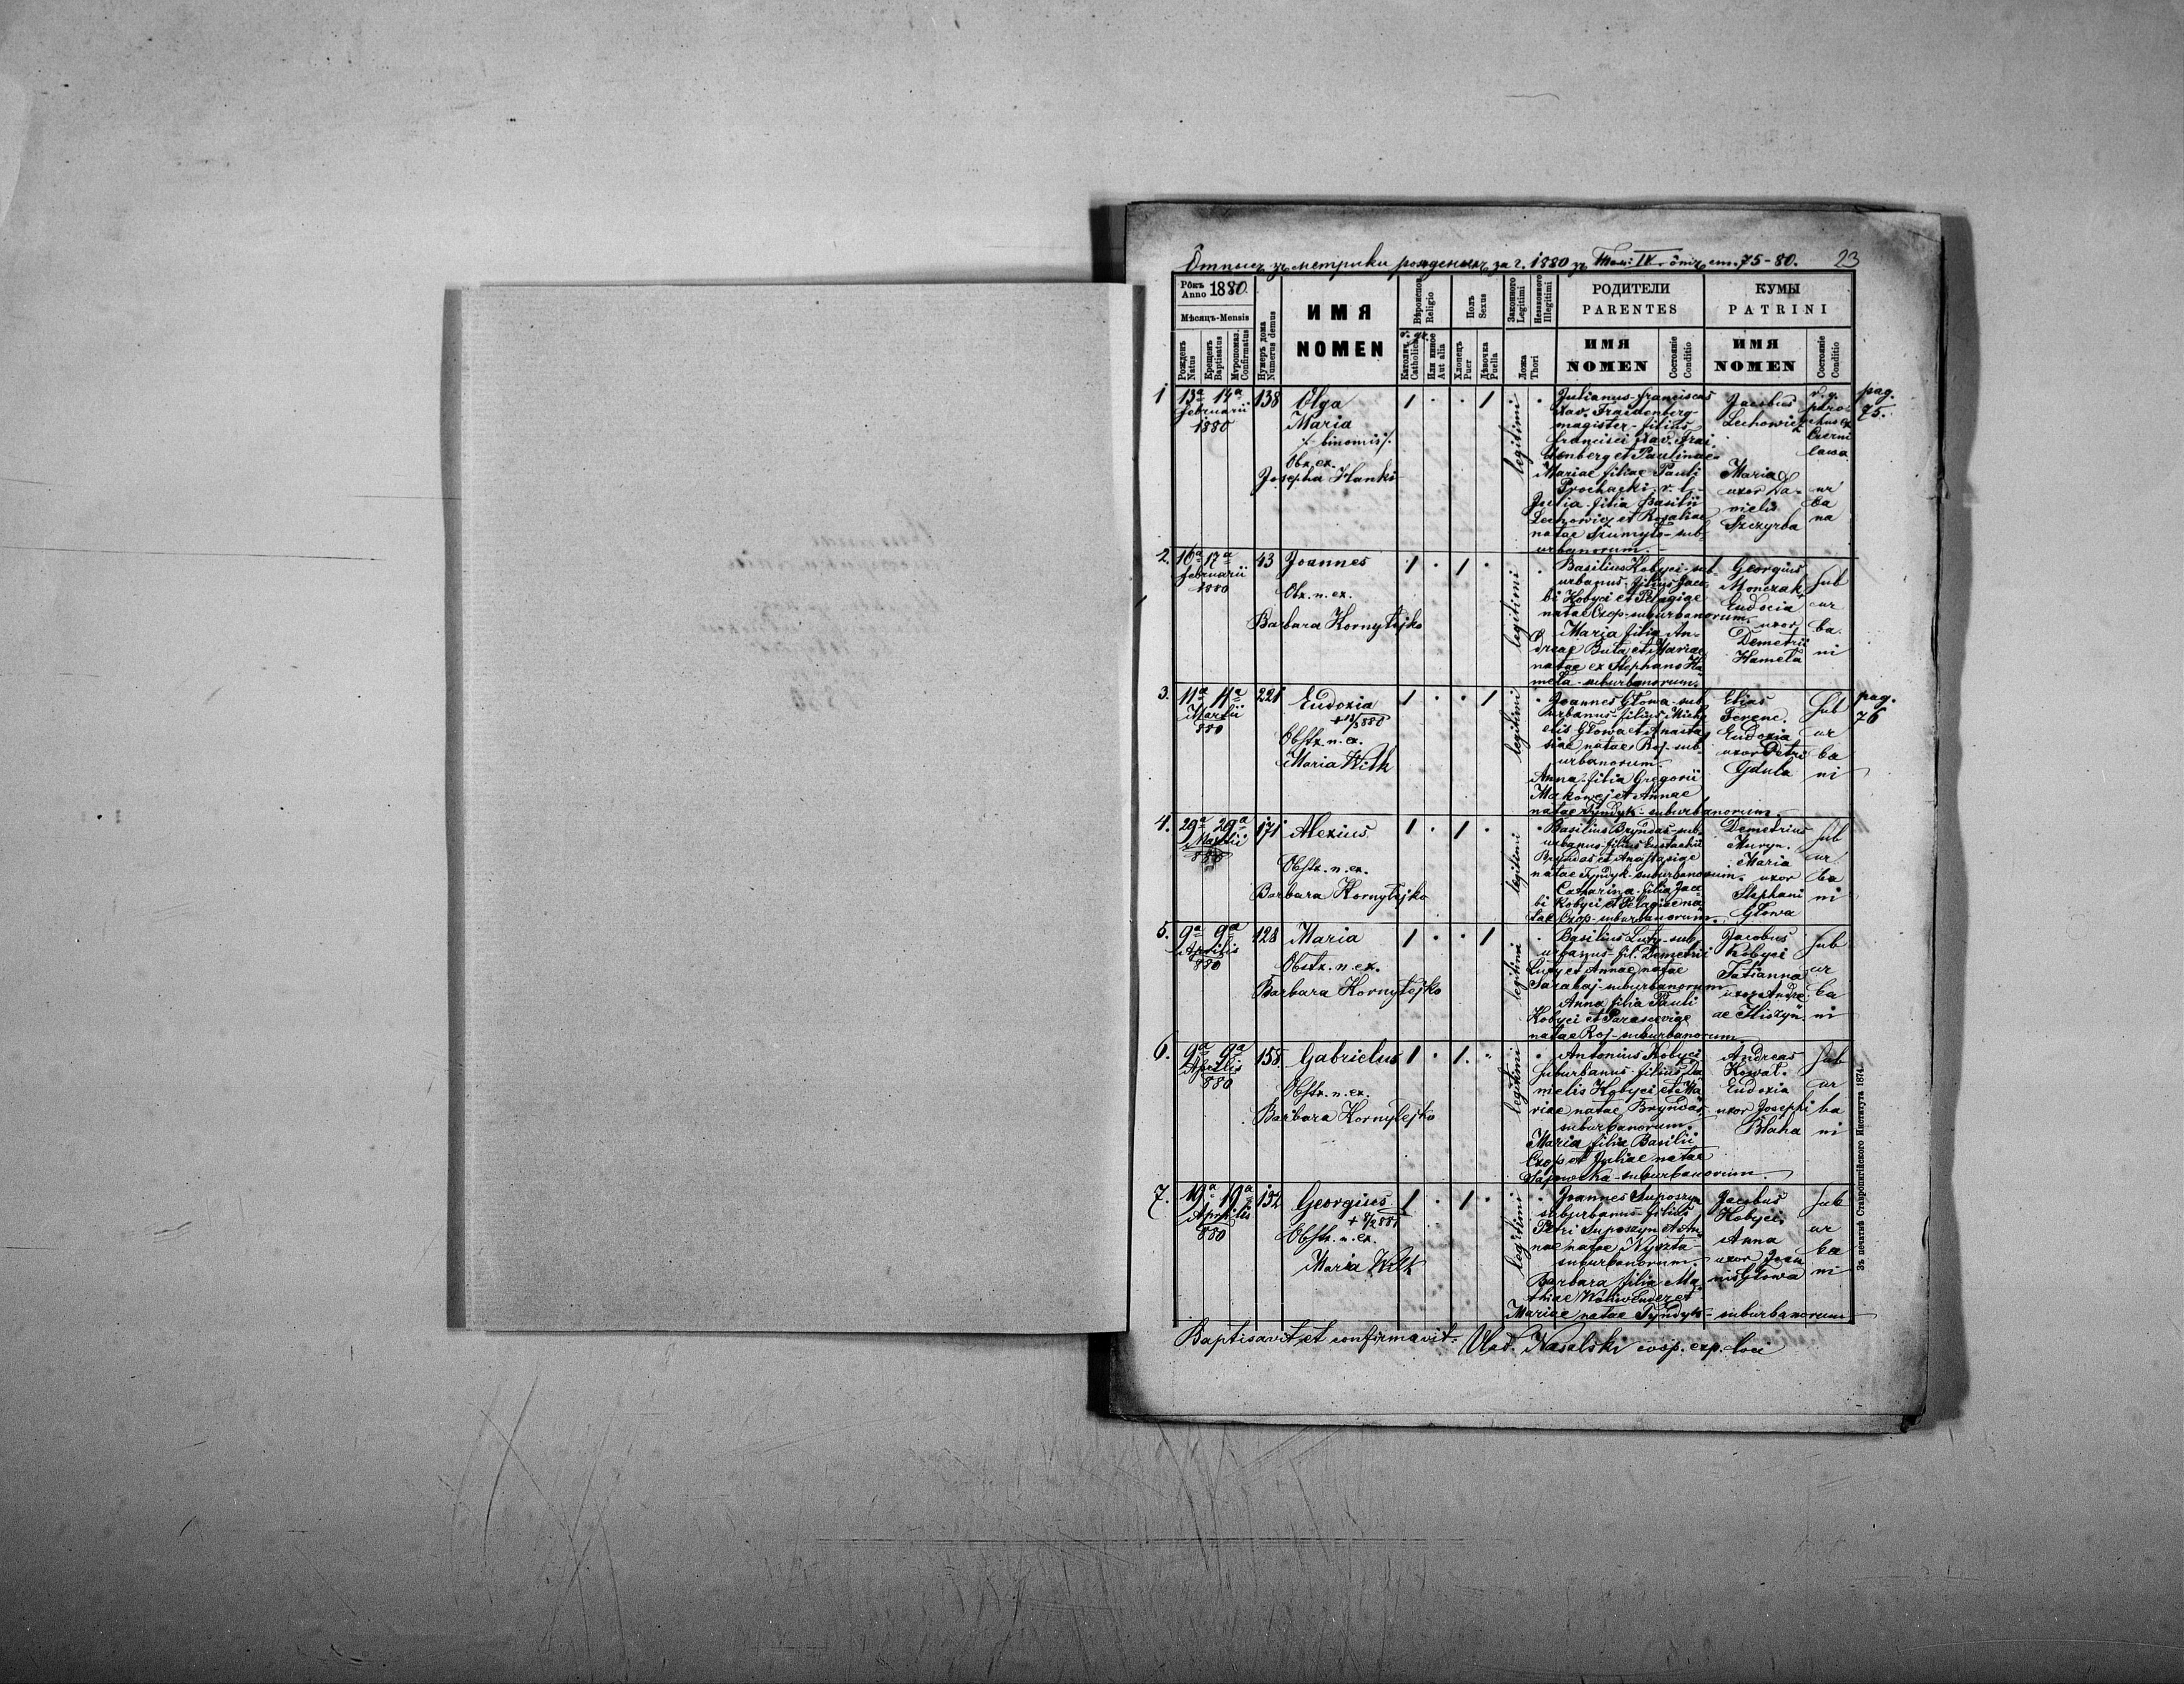 Ôтпысъ зъ метрики рожденыхъ за г. 1880 зъ Том: IV. ôтъ ст. 75-80. 23
Рôкъ Anno 1880.
Мѣсяцъ-Mensis
Рожденъ Natus
Крещенъ Baptisatus
Мѵропомаз. Confirmatus
Нумеръ дома
Numerus domus
ИМЯ
NOMEN
Вѣроисповѣд.
Religio
Католич.
Catholica
Или иное
Aut alia
Полъ
Sexus
Хлопецъ
Puer
Дѣвочка
Puella
Законного
Legitimi
Незаконного
Illegitimi
Ложа
Thori
РОДИТЕЛИ
PARENTES
ИМЯ
NOMEN
Состоянiе
Conditio
КУМЫ
PATRINI
ИМЯ
NOMEN
Состоянiе
Conditio
1 13ª 14ª
Februarii
1880
138
Olga
Maria
/: binomis :/
Obx. ex.
Josepha Hanko
1 . . 1
legitimi
Julianus-Franciscus
Xav. Fraidenberg-
magister-filius
Francisci Xav. Frai-
denberg et Paulinae
Mariae filiae Pauli
Prochacki. r. l.
Julia filia Basilii
Lechowicz et Rosaliae
natae Szumyło-sub-
urbanorum.
Jacobus
Lechowicz
Maria
uxor Da-
nielis
Szczyrba
r. g.
paro-
chus ex
Czerni
lawa
ur
ba
na
pag.
75.
2. 16ª 17ª
Februarii
1880
43
Joannes
Obx. n. ex.
Barbara Kornyłejko
1 . 1 .
legitimi
Basilius Kobyci-sub-
urbanus-filius Jaco-
bi Kobyci et Pelagiae
natae Czop-suburbanorum.
Maria filia An-
dreae Buta et Mariae
natae ex Stephano Ha
meta-suburbanorum.
Georgius
Monczak
Eudocia
uxor
Demetrii
Hameta
sub
ur
ba
ni
3. 11ª 11ª
Martii
880
221
Eudoxia
Obstx. n. ex.
Maria Wilk
1 . . 1
legitimi
Joannes Głowa-sub-
urbanus-filius Micha
elis Głowa et Anasta
siae natae Roj-sub-
urbanorum.
Anna-filia Gregorii
Makowej et Annae
natae Tyndyk-suburbanorum.
Elias
Ferenc.
Eudoxia
uxor Petri
Gdula
sub
ur
ba
ni
pag.
76
4. 29ª 29ª
Martii
880
171
Alexius
Obstx. n. ex.
Barbara Kornyłejko
1 . 1 .
legitimi
Basilius Bryndas-sub-
urbanus-filius Eustachii
Bryndas et Anastasiae
natae Tyndyk-suburbanorum.
Catharina-filia Jaco-
bi Kobyci et Pelagiae na-
tae Czop-suburbanorum.
Demetrius
Muryn.
Maria
uxor
Stephani
Głowa
sub
ur
ba
ni
5. 9ª 9ª
Aprilis
880
128
Maria
Obstx. n. ex.
Barbara Kornyłejko
1 . . 1
legitimi
Basilius Luty-sub-
urbanus-fil. Demetrii
Luty et Annae natae
Sarabaj-suburbanorum
Anna filia Pauli
Kobyci et Parascevige
natae Roj-suburbanorum
Jacobus
Kobyci
Tatianna
uxor Andre
ae Hiszyn.
sub
ur
ba
ni
6. 9ª 9ª
Aprilis
880
158.
Gabrielus
Obstx. n. ex.
Barbara Kornyłejko
1 . 1. .
legitimi
Antonius Kobyci
suburbanus-filius Da
nielis Kobyci et Ma
riae natae Bryndas
suburbanorum.
Maria filia Basilii
Czop et Juliae natae
Sapowska-suburbanorum
Andreas
Kowal.
Eudoxia
uxor Josephi
Blaha
sub
ur
ba
ni
7. 19ª 19ª
Aprilis
880
132
Georgius
Obstx. n. ex.
Maria Wilk
1 . 1 .
legitimi
Joannes Suposzyn
suburbanus-filius
Petri Suposzyn et An
nae natae Nyszta
suburbanorum.
Barbara filia Ma
thiae et
Mariae natae Tyndyk-suburbanorum
Jacobus
Kobyci.
Anna
uxor Joan
nis Głowa
sub
ur
ba
ni
Baptisavit et confirmavit: Vlad. Nasalski coop. exp. loci
Зъ печатнѣ Ставропигiйского Института 1874.